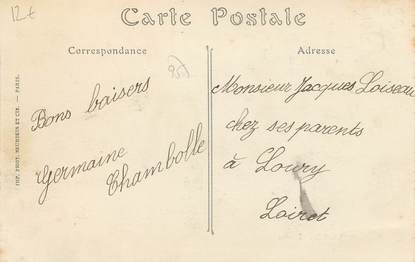 12€
Carte Postale
Correspondance
Adresse
95
Bons baisers
Germaine
Chambolle
Monsieur Jacques Loiseau
chez ses parents
à Loury
Loiret
IMP. PHOT. NEURDEIN ET CIE. — PARIS.